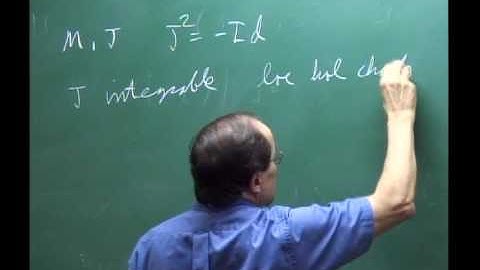 M, J J² = -Id
J integrable loc hol cha